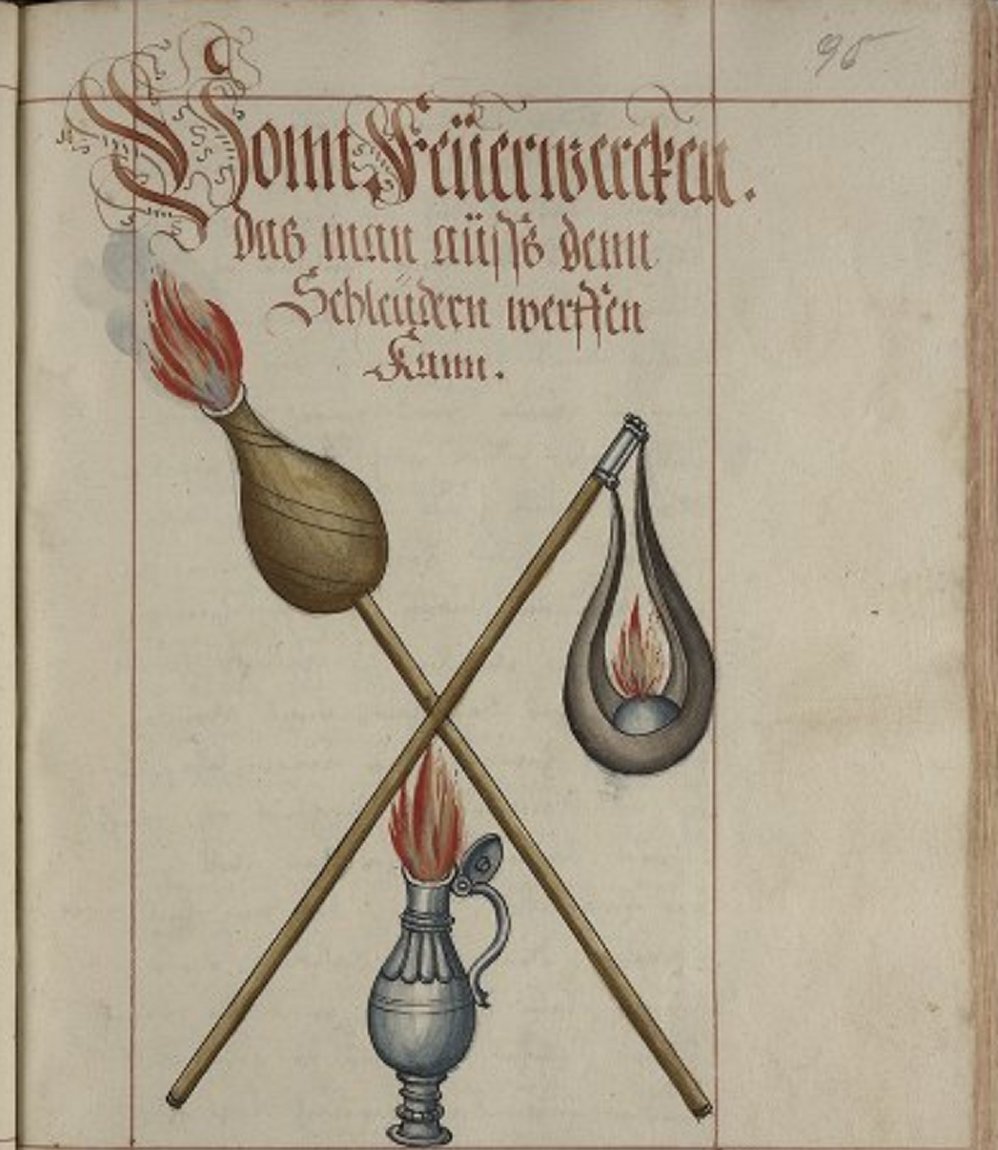 95
Vonn Feüerwercken.
das man aüss denn
Schleüdern werffen
Kann.